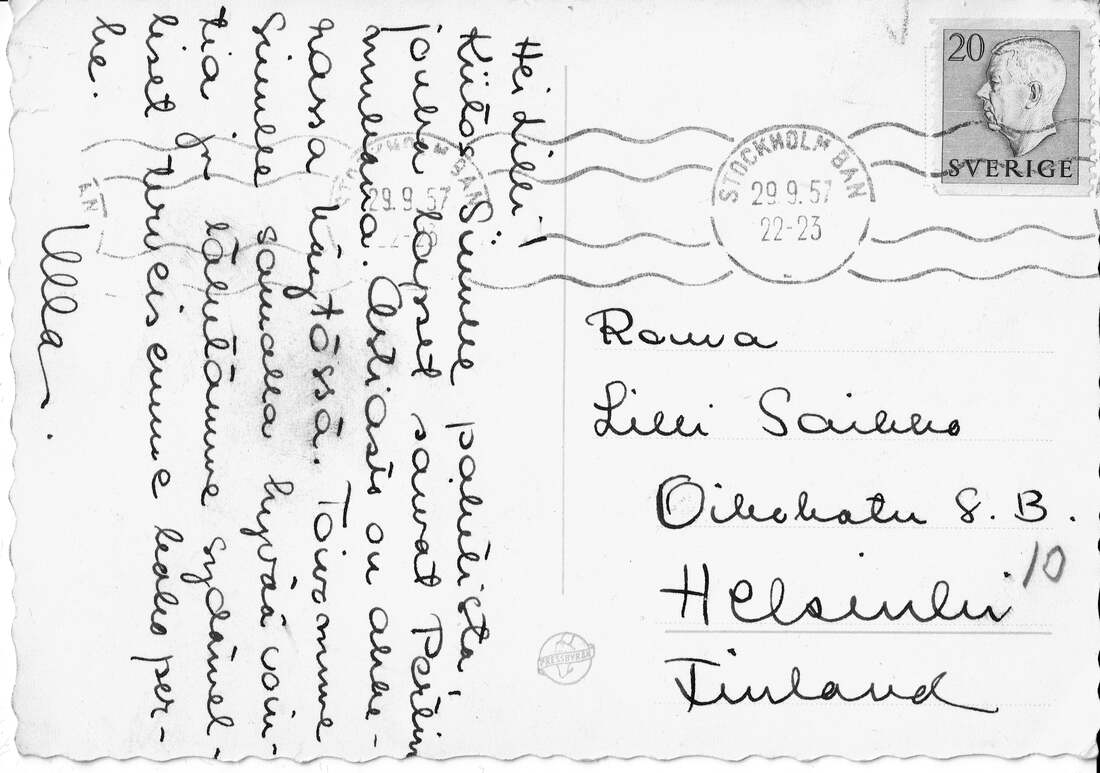 Hei Lilli!
Kiitos Sinulle paketista,
jonka lapset saivat
mukana. Astiasto on ahke-
rassa käytössä. Toivomme
Sinulle samalla hyvää voin-
tia ja lähetämme sydämel-
liset terveisemme koko per-
he.
Ulla.
20
SVERIGE
STOCKHOLM BAN
29.9.57
22-23
STOCKHOLM BAN
29.9.57
22-23
AN
Rouva
Lilli Saikko
Oikokatu 8. B.
10
Helsinki
Finland
PRESSBYRÅN